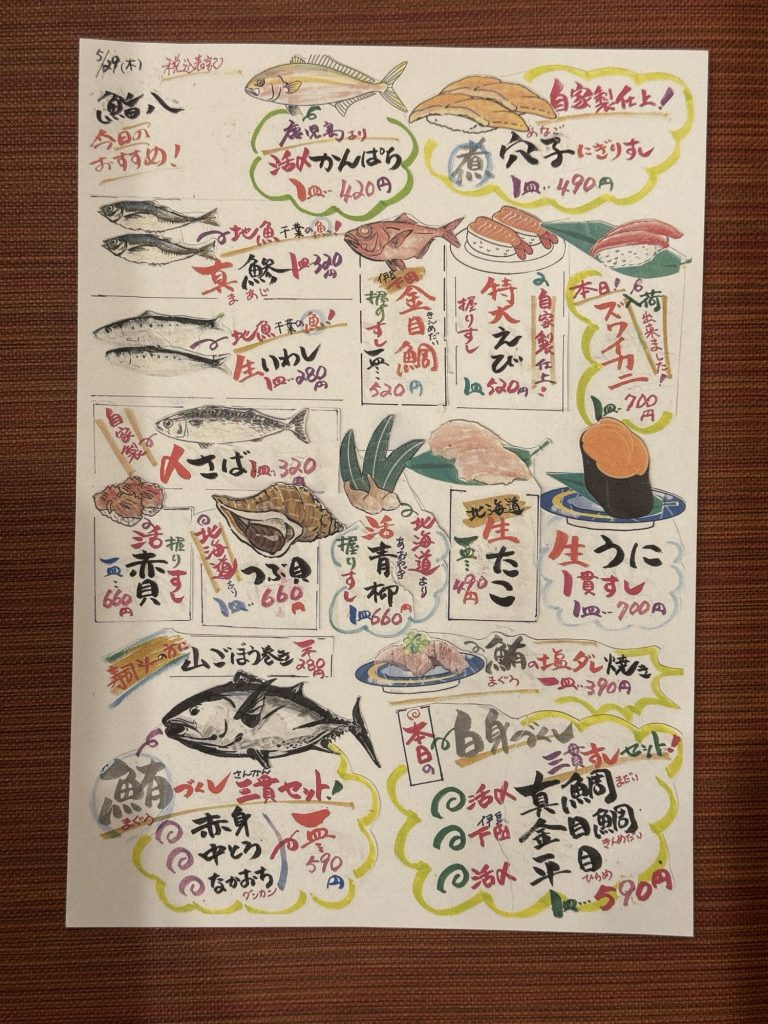 5/29(木)
税込表記
鮨八
今日の
おすすめ!
鹿児島より
活〆かんぱち
1皿…420円
自家製仕上!
あなご
煮 穴子にぎりすし
1皿…490円
地魚 千葉の魚!
真鯵 1皿320円
まあじ
地魚 千葉の魚!
生いわし
1皿…280円
伊豆下田
金目鯛
きんめだい
握りすし
一皿…
520円
自家製仕上!
特大えび
握りすし
1皿520円
本日!
入荷出来ました!
ズワイカニ
1皿…700円
自家製
〆さば 1皿…320円
活赤貝
握りすし
一皿…
660円
北海道より
つぶ貝
1皿…660円
北海道より
活青柳
あおやぎ
握りすし
1皿660円
北海道
生たこ
一皿…
490円
生うに
1貫すし
1皿…700円
山ごぼう巻き 一本280円
鮪の塩ダレ焼き
まぐろ
一皿…390円
鮪づくし三貫セット!
まぐろ
さんかん
赤身
中とろ
なかおち
グンカン
一皿…590円
本日の
白身づくし
三貫すしセット!
活〆 真鯛 まだい
伊豆下田 金目鯛 きんめだい
活〆 平目 ひらめ
1皿…590円